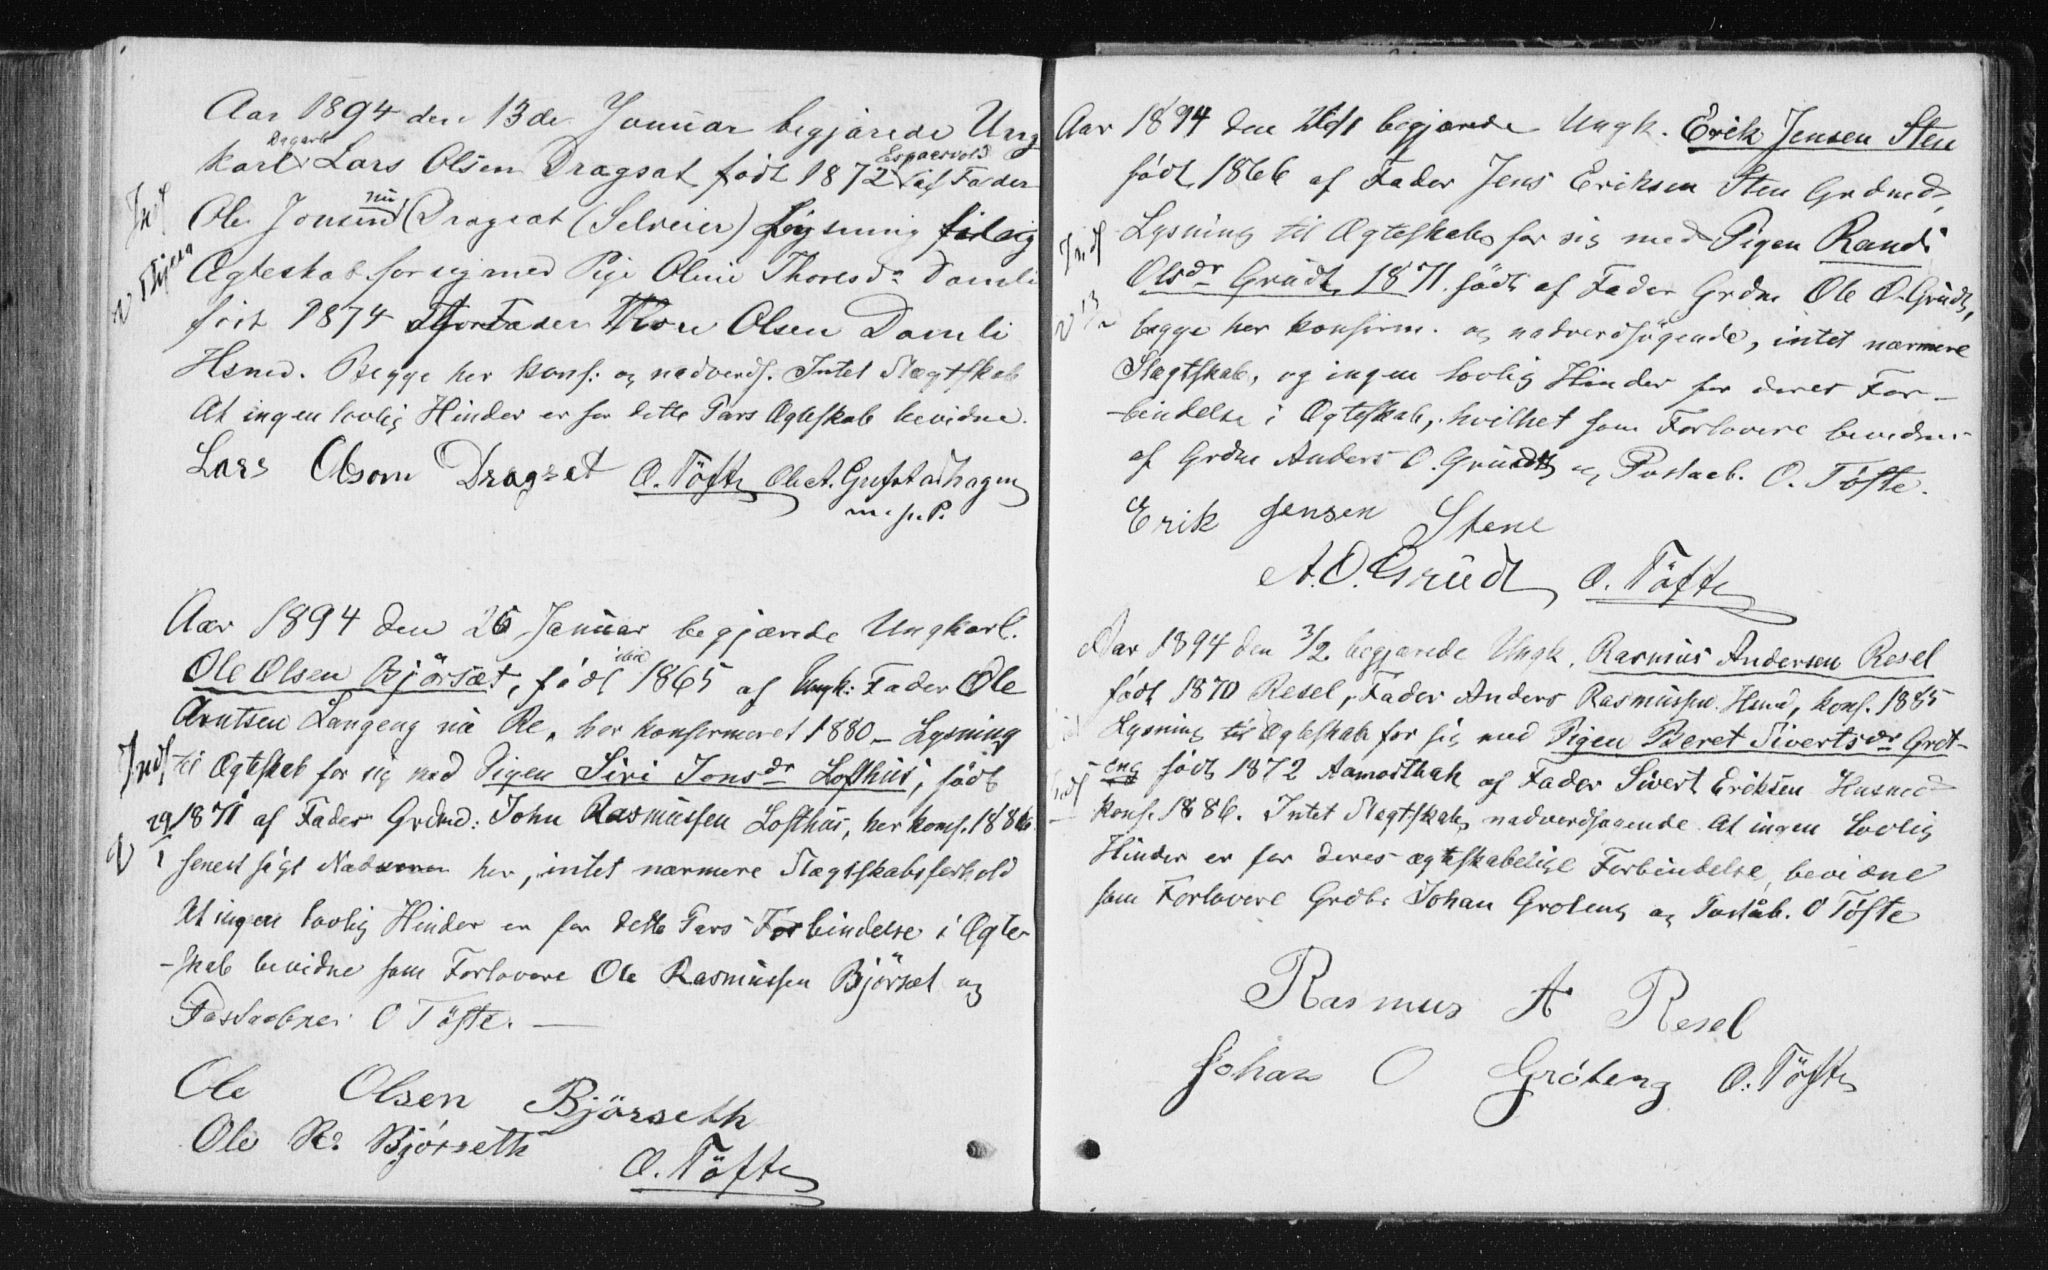 Aar 1894 den 13de Januar begjærede Ung
Dagarb
karl Lars Olsen Dragsat født 1872 af Fader
Ole Jonsen nu Dragsat (Selveier) Lysning
Ægteskab for sig med Pige Oline Thoresdr Damli
født 1874 Fader Thore Olsen Damli
Hsmd. Begge her konf: og nadverds. Intet Slægtskab
At ingen lovlig Hinder er for dette Pars Ægteskab bevidne.
Lars Olsom Dragset O. Töfte Ole A. Gustadhagen
m. p. P.
Aar 1894 den 26 Januar begjærede Ungkarl.
Ole Olsen Björsæt, født 1865 af Ungk: Fader Ole
Arntsen Langeng nu Re, her konfirmeret 1880 – Lysning
Indf til Ægteskab for sig med Pigen Siri Jonsdr Lofthus, født
29/1 1871 af Fader Grdmd: John Rasmussen Lofthus, her konf. 1886
senest søgt Nadveren her, intet nærmere Slægtskabsforhold
At ingen lovlig Hinder er for dette Pars Forbindelse i Ægte-
-skab bevidne som Forlovere Ole Rasmussen Björset og
Postaabner O Töfte. —
Ole Olsen Björseth
Ole R. Bjørseth
O. Töfte
Aar 1894 den begjærede Ungk. Erik Jensen Sten
født 1866 af Fader Jens Eriksen Sten Grdmd,
Lysning til Ægteskab for sig med Pigen Randi
Indf
Olsdr Grudt, 1871 født af Fader Grdm Ole O. Grudt,
begge her konfirm. og nadverdsøgende, intet nærmere
Slægtskab, og ingen lovlig Hinder for deres For-
-bindelse i Ægteskab, hvilket som Forlovere bevidnes
af Grdm Anders O. Grudt og Postaab. O. Töfte.
Erik Jensen Stene
A. O. Grüdt O. Töfte
Aar 1894 den 3/2 begjærede Ungk. Rasmus Andersen Resel
født 1870 Resel, Fader Anders Rasmussen Hsmd, konf. 1885
Lysning til Ægteskab for sig med Pigen Beret Sivertsdr Grøt-
eng født 1872 af Fader Sivert Eriksen Husmd
konf. 1886. Intet Slægtskab, nadverdsøgende. At ingen lovlig
Hinder er for deres ægteskabelige Forbindelse, bevidne
som Forlovere Grdbr Johan Grøteng og Postaab. O Töfte
Rasmus A Resel
Johan O Grøteng O. Töfte